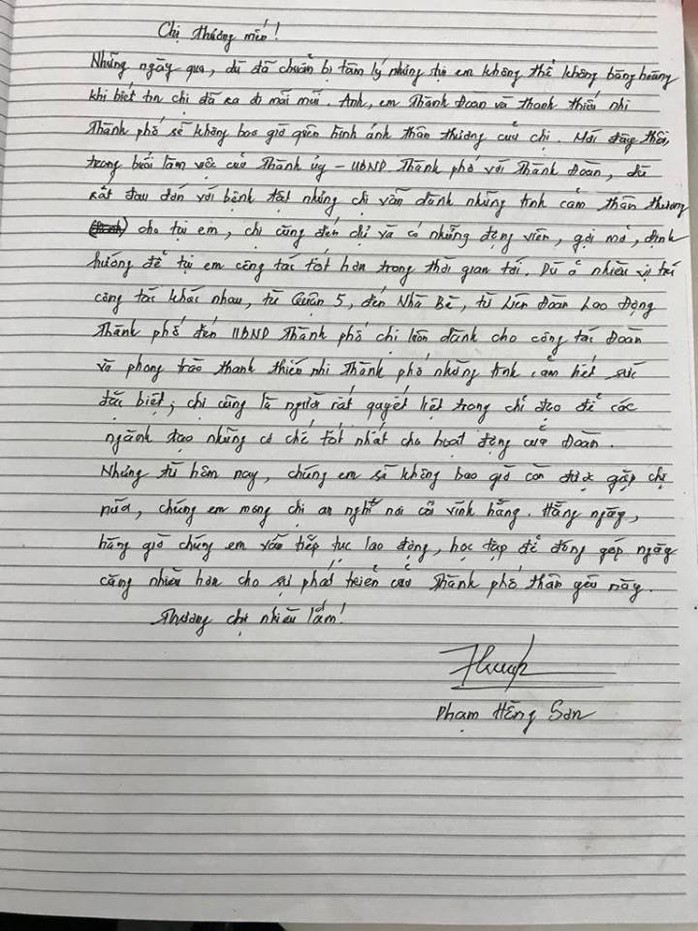 Chị thương mến!
Những ngày qua, dù đã chuẩn bị tâm lý nhưng tụi em không thể không bàng hoàng
khi biết tin chị đã ra đi mãi mãi. Anh, em Thành Đoàn và thanh thiếu nhi
Thành phố sẽ không bao giờ quên hình ảnh thân thương của chị. Mới đây thôi,
trong buổi làm việc của Thành ủy - UBND Thành phố với Thành Đoàn, dù
rất đau đớn với bệnh tật nhưng chị vẫn dành những tình cảm thân thương
cho tụi em, chị cũng đến dự và có những động viên, gợi mở, định
hướng để tụi em công tác tốt hơn trong thời gian tới. Dù ở nhiều vị trí
công tác khác nhau, từ Quận 5, đến Nhà Bè, từ Liên Đoàn Lao Động
Thành phố đến UBND Thành phố chị luôn dành cho công tác Đoàn
và phong trào thanh thiếu nhi Thành phố những tình cảm hết sức
đặc biệt; chị cũng là người rất quyết liệt trong chỉ đạo để các
ngành tạo những cơ chế tốt nhất cho hoạt động của Đoàn.
Nhưng từ hôm nay, chúng em sẽ không bao giờ còn được gặp chị
nữa, chúng em mong chị an nghỉ nơi cõi vĩnh hằng. Hằng ngày,
hằng giờ chúng em vẫn tiếp tục lao động, học tập để đóng góp ngày
càng nhiều hơn cho sự phát triển của Thành phố thân yêu này.
Thương chị nhiều lắm!
Phạm Hồng Sơn